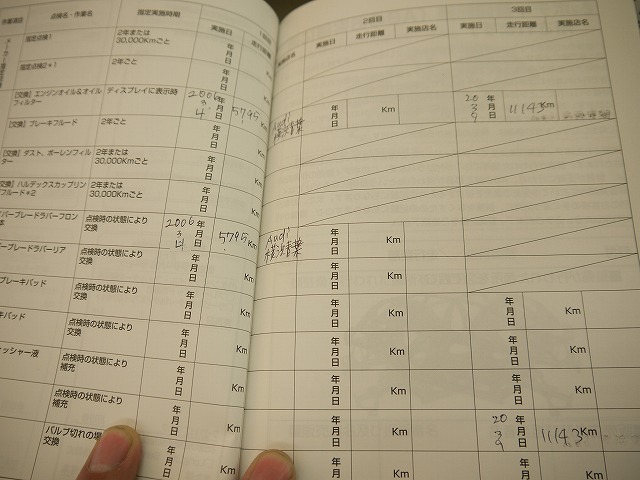 作業項目 点検名・作業名 指定実施時期 1回目 2回目 3回目
実施日 走行距離 実施店名 実施日 走行距離 実施店名 実施日 走行距離 実施店名
指定点検1 2年または
30,000Kmごと 年月日 Km
指定点検2*1 2年ごと 年月日 Km
[交換] エンジンオイル&オイル
フィルター ディスプレイに表示時 2006年3月4日 5795Km 年月日 Km 20 年3月9日 11143Km
[交換] ブレーキフルード 2年ごと 年月日 Km
[交換] ダスト、ポーレンフィル
ター 2年または
30,000Kmごと 年月日 Km
[交換] ハルデックスカップリン
グフルード*2 2年または
30,000Kmごと 年月日 Km
パーブレードラバーフロン
点検時の状態により
交換 2006年3月4日 5795Km Audi 年月日 Km
パーブレードラバーリア 点検時の状態により
交換 年月日 Km 年月日 Km
ブレーキパッド 点検時の状態により
交換 年月日 Km 年月日 Km 年月日 Km
キパッド 点検時の状態により
交換 年月日 Km 年月日 Km 年月日 Km
ォッシャー液 点検時の状態により
補充 年月日 Km 年月日 Km 年月日 Km
点検時の状態により
補充 年月日 Km 年月日 Km 20 年3月9日 11143Km
バルブ切れの場
交換 年月日 Km 年月日 Km 年月日 Km